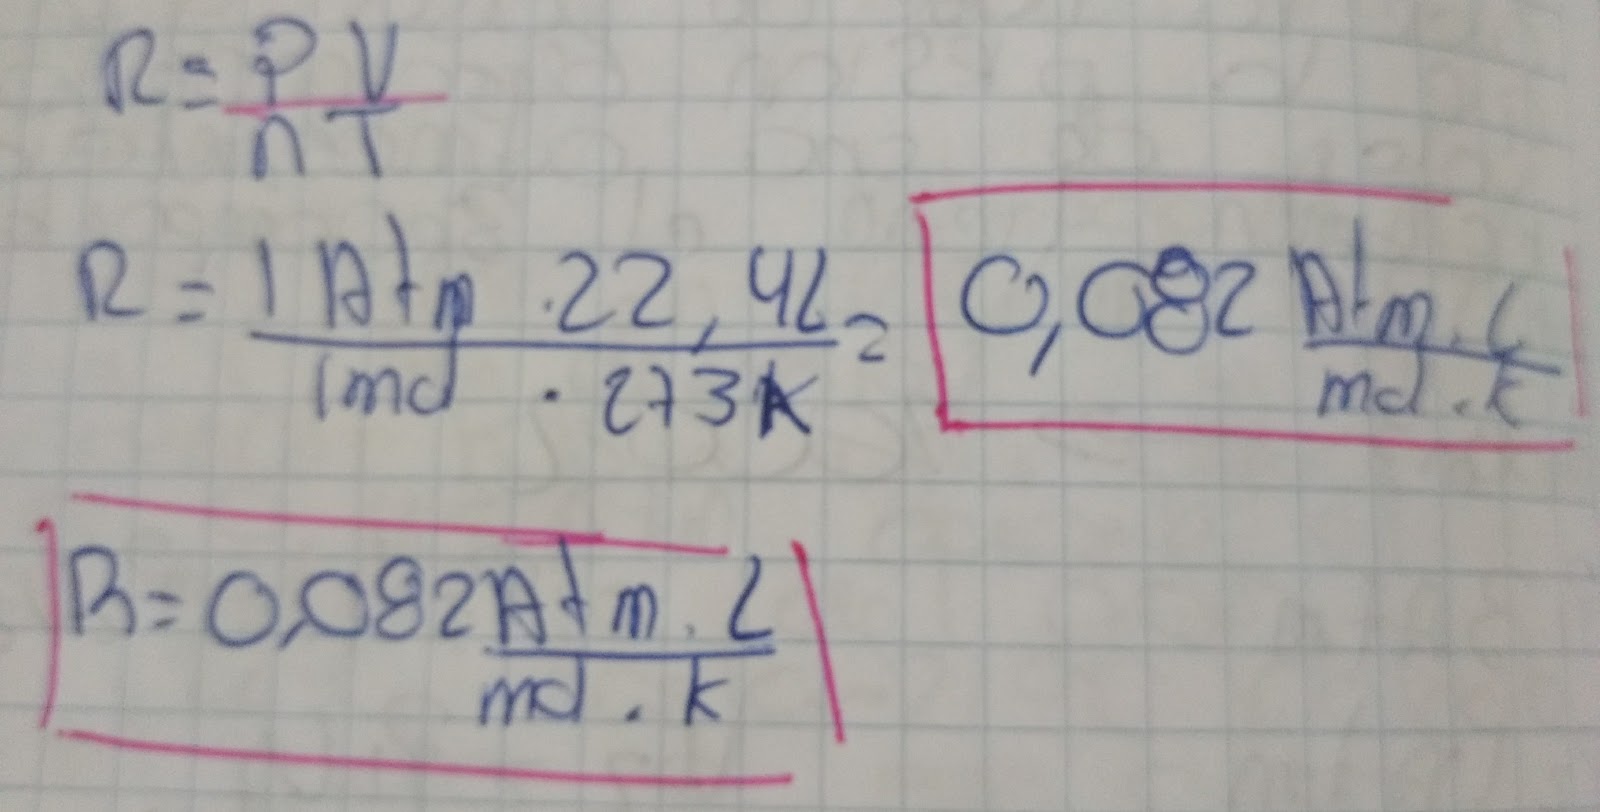 R = P V / n T
R = 1 Atm . 22,4L / 1mol . 273K = 0,082 Atm . L / mol . k
R = 0,082 Atm . L / mol . k